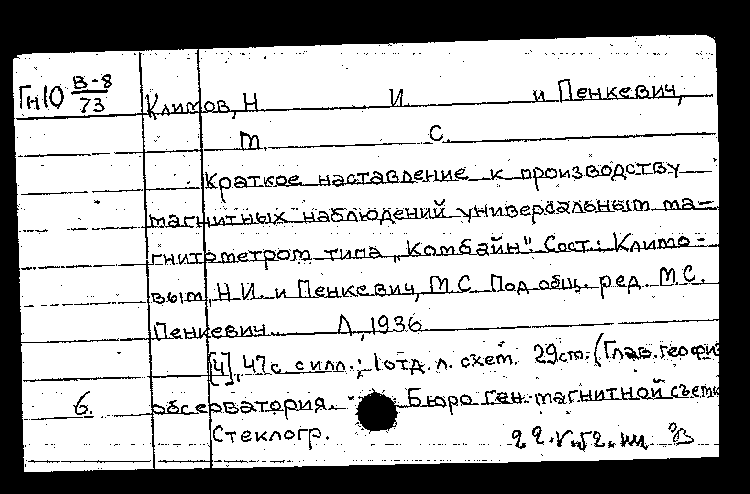 Гн10 В-8/73
Климов, Н И. и Пенкевич,
М С.
Краткое наставление к производству
магнитных наблюдений универсальным ма-
гнитометром типа „Комбайн". Сост.: Климо-
вым, Н.И. и Пенкевич, М.С. Под общ. ред. М.С.
Пенкевич. Л., 1936
[4], 47с. с илл.; 1 отд. л. схем. 29см. (Глав. геофиз
6. обсерватория. Бюро Ген. магнитной съемк
Стеклогр.